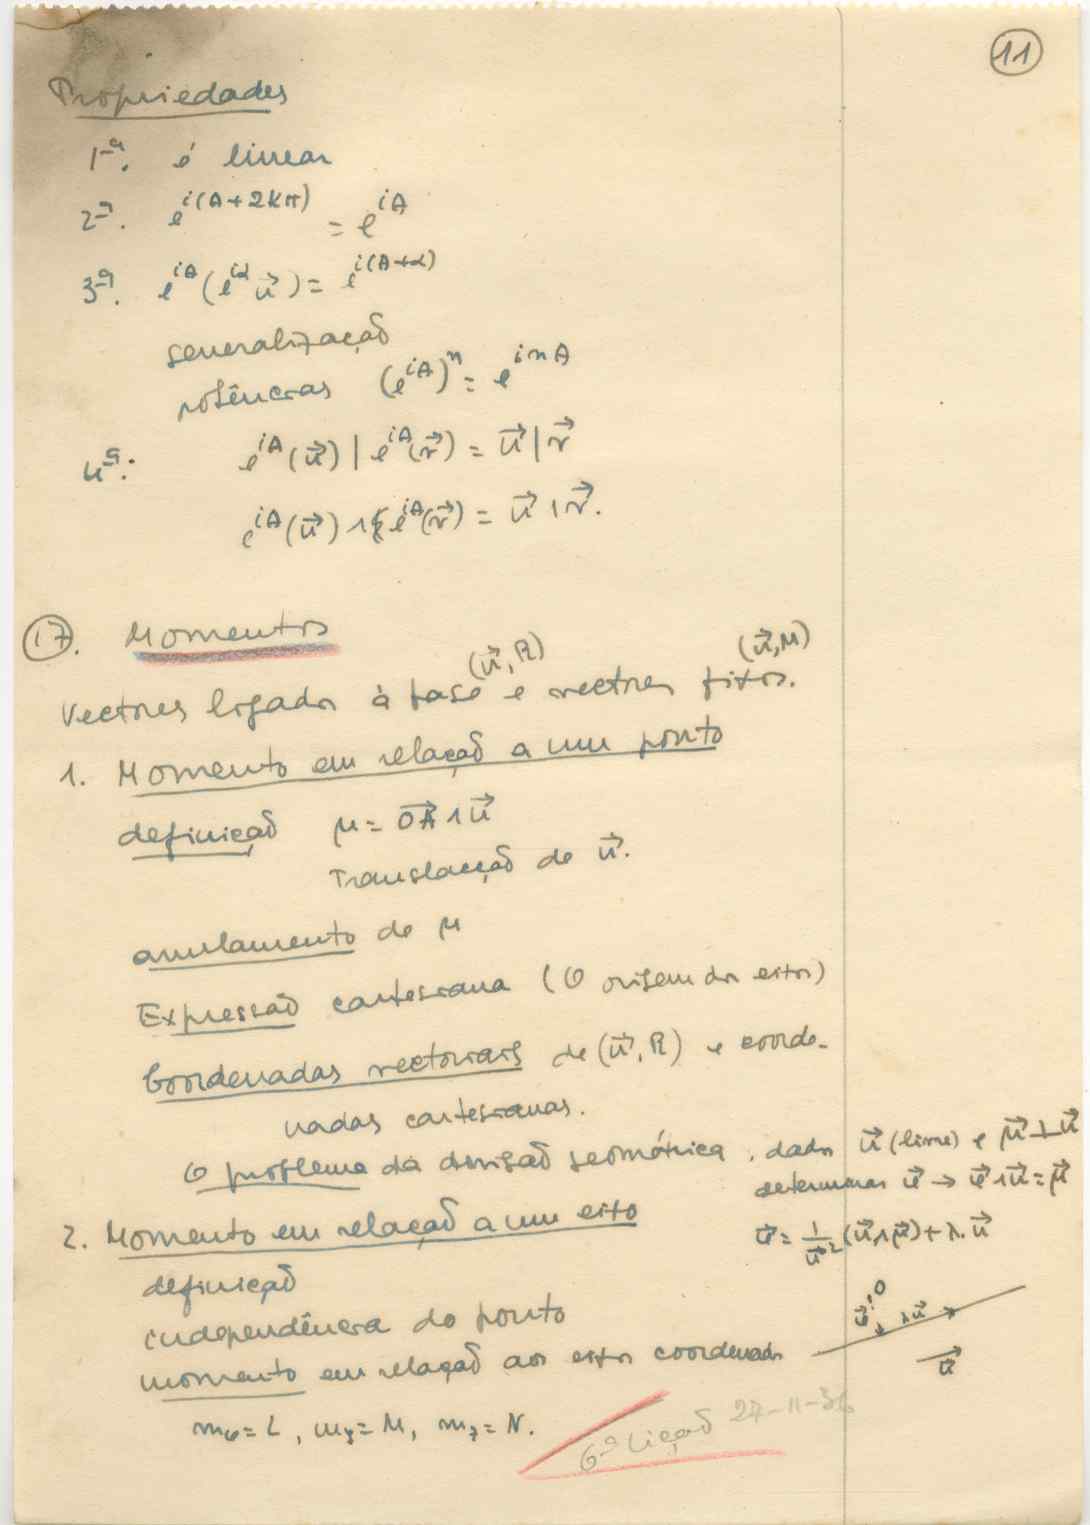 11
Propriedades
1ª. é linear
2ª. e^{i(A+2Kπ)} = e^{iA}
3ª. e^{iA}(e^{iα} u⃗) = e^{i(A+α)}
generalização
potências (e^{iA})^n = e^{inA}
4ª: e^{iA}(u⃗) | e^{iA}(v⃗) = u⃗ | v⃗
e^{iA}(u⃗) ∧ e^{iA}(v⃗) = u⃗ ∧ v⃗.
17. Momentos
(u⃗, R) (u⃗, M)
Vectores ligados à base e vectores fixos.
1. Momento em relação a um ponto
definição μ = OA⃗ ∧ u⃗
Translacção de u⃗.
anulamento de μ
Expressão cartesiana (O origem dos eixos)
Coordenadas vectoriais de (u⃗, R) e coorde-
nadas cartesianas.
O problema da divisão geométrica, dados u⃗ (livre) e μ⃗ ⊥ u⃗
determinar v⃗ → v⃗ ∧ u⃗ = μ⃗
v⃗ = 1/u⃗² (u⃗ ∧ μ⃗) + λ. u⃗
2. Momento em relação a um eixo
definição
independência do ponto
momento em relação aos eixos coordenados
mₓ = L, m_y = M, m_z = N.
O
v⃗
λu⃗
u⃗
6ª Lição 27-11-36